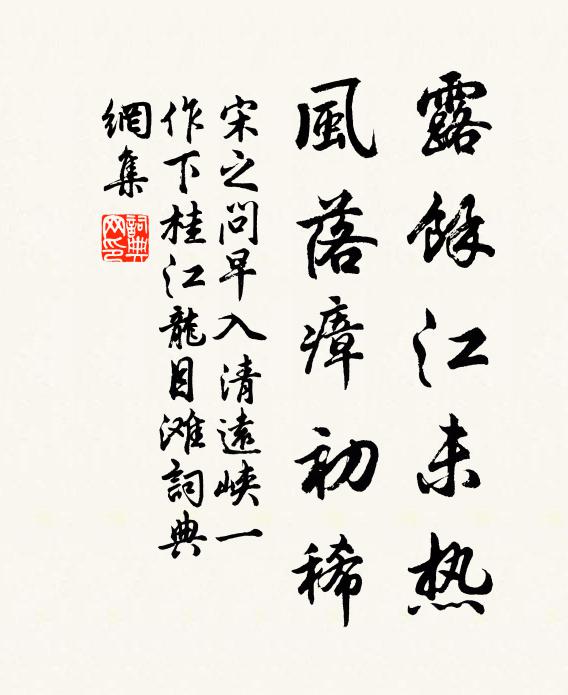 露餘江未热
風落瘴初稀
宋之问早入清遠峽一
作下桂江龍目滩詞典
網集
詞典
网印